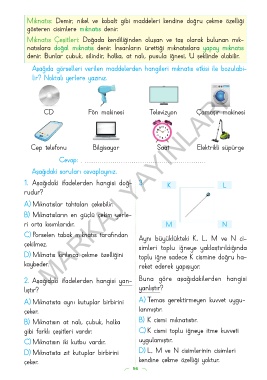 Mıknatıs: Demir, nikel ve kobalt gibi maddeleri kendine doğru çekme özelliği
gösteren cisimlere mıknatıs denir.
Mıknatıs Çeşitleri: Doğada kendiliğinden oluşan ve taş olarak bulunan mık-
natıslara doğal mıknatıs denir. İnsanların ürettiği mıknatıslara yapay mıknatıs
denir. Bunlar çubuk, silindir, halka, at nalı, pusula iğnesi, U şeklinde olabilir.
Aşağıda görselleri verilen maddelerden hangileri mıknatıs etkisi ile bozulabi-
lir? Noktalı yerlere yazınız.
CD
Fön makinesi
Televizyon
Çamaşır makinesi
Cep telefonu
Bilgisayar
Saat
Elektrikli süpürge
Cevap:
Aşağıdaki soruları cevaplayınız.
1. Aşağıdaki ifadelerden hangisi doğ-
rudur?
A) Mıknatıslar tahtaları çekebilir.
B) Mıknatısların en güçlü çekim yerle-
ri orta kısımlarıdır.
C) Porselen tabak mıknatıs tarafından
çekilmez.
D) Mıknatıs kırılınca çekme özelliğini
kaybeder.
2. Aşağıdaki ifadelerden hangisi yan-
lıştır?
A) Mıknatısta aynı kutuplar birbirini
çeker.
B) Mıknatısın at nalı, çubuk, halka
gibi farklı çeşitleri vardır.
C) Mıknatısın iki kutbu vardır.
D) Mıknatısta zıt kutuplar birbirini
çeker.
3.
K L
M N
Aynı büyüklükteki K, L, M ve N ci-
simleri toplu iğneye yaklaştırıldığında
toplu iğne sadece K cismine doğru ha-
reket ederek yapışıyor.
Buna göre aşağıdakilerden hangisi
yanlıştır?
A) Temas gerektirmeyen kuvvet uygu-
lanmıştır.
B) K cismi mıknatıstır.
C) K cismi toplu iğneye itme kuvveti
uygulamıştır.
D) L, M ve N cisimlerinin cisimleri
kendine çekme özelliği yoktur.